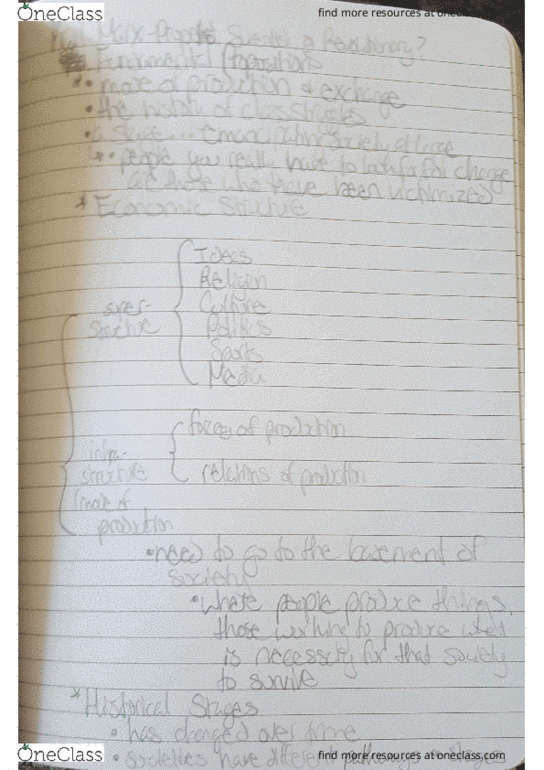 OneClass
find more resources at oneclass.com
Fundamental Propositions
• mode of production & exchange
• the history of class struggles
• a stage ... emancipating society at large
• people you really have to look for change
are those who have been victimized
* Economic Structure
Ideas
Religion
Culture
super-
structure
Politics
Sports
Media
forces of production
infra-
structure
relations of production
(mode of
production
• need to go to the basement of
society
• where people produce things,
those working to produce what
is necessary for that society
to survive
* Historical Stages
• has changed over time
• societies have different
OneClass
find more resources at oneclass.com